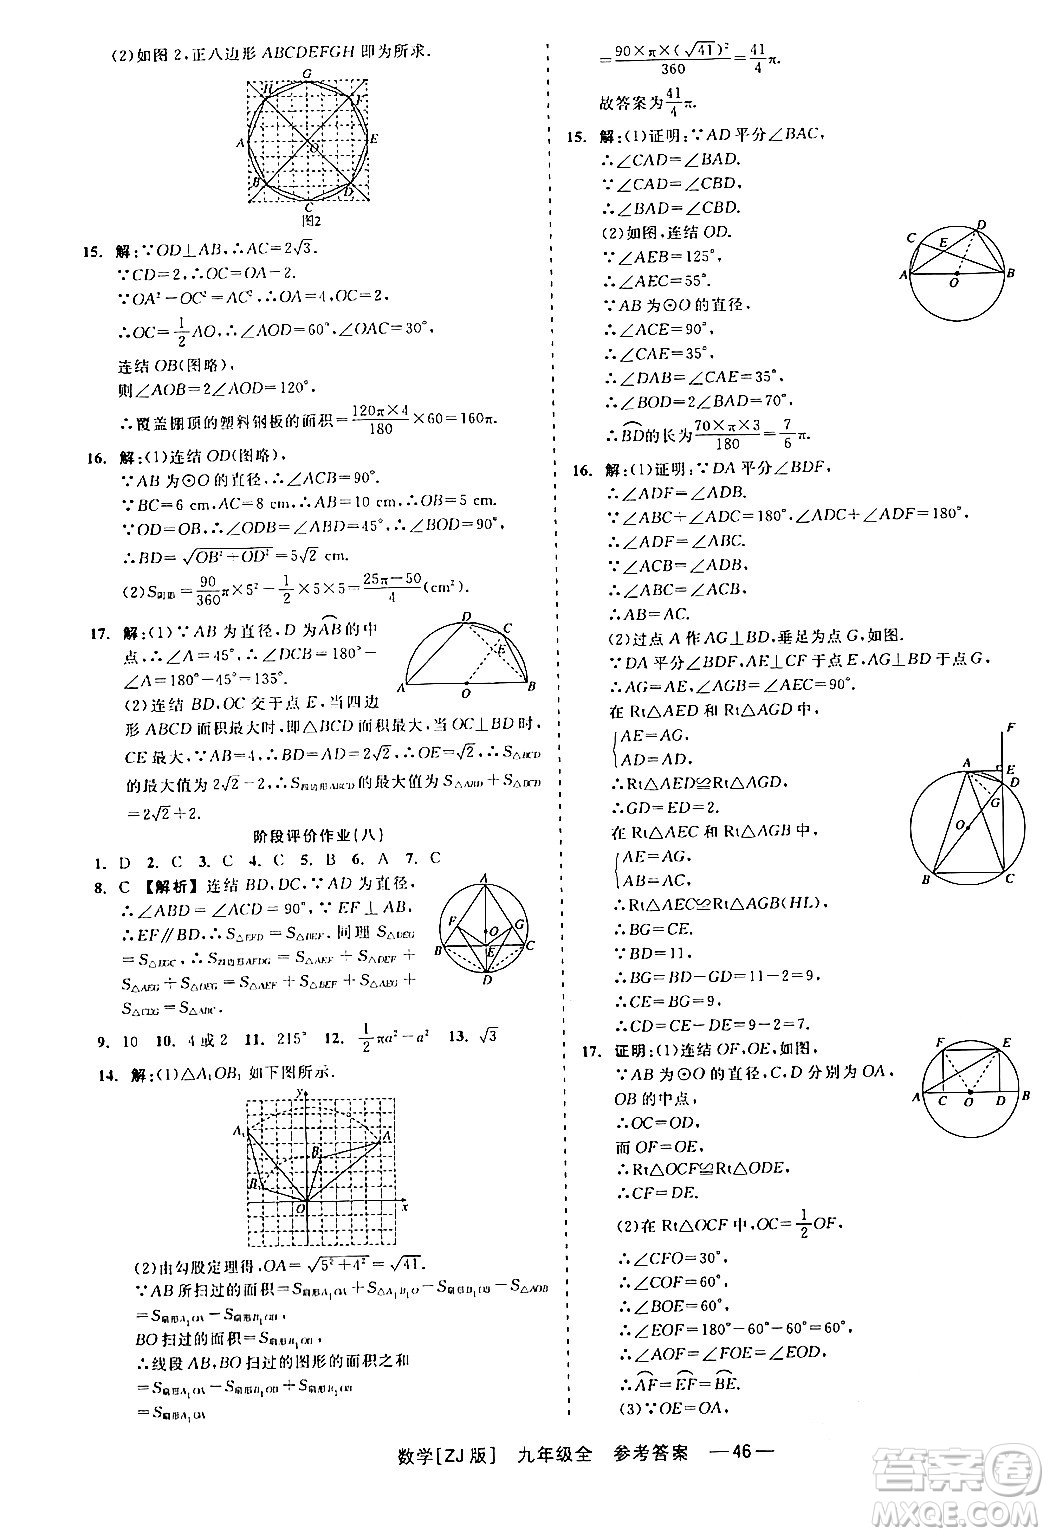 (2)如图 2,正八边形 ABCDEFGH 即为所求.
H G F A O E B D C
图2
15. 解:∵OD⊥AB,∴AC=2√3.
∵CD=2,∴OC=OA-2.
∵OA²-OC²=AC²,∴OA=4,OC=2,
∴OC=1/2 AO,∴∠AOD=60°,∠OAC=30°,
连结 OB(图略),
则∠AOB=2∠AOD=120°.
∴覆盖棚顶的塑料钢板的面积=120π×4/180×60=160π.
16. 解:(1)连结 OD(图略),
∵AB 为⊙O 的直径,∴∠ACB=90°.
∵BC=6 cm,AC=8 cm,∴AB=10 cm,∴OB=5 cm.
∵OD=OB,∴∠ODB=∠ABD=45°,∴∠BOD=90°,
∴BD=√(OB²+OD²)=5√2 cm.
(2)S阴影=90/360 π×5²-1/2×5×5=(25π-50)/4(cm²)
17. 解:(1)∵AB 为直径,D 为⌒AB的中
点,∴∠A=45°,∴∠DCB=180°-
∠A=180°-45°=135°.
(2)连结 BD,OC 交于点 E,当四边
形 ABCD 面积最大时,即△BCD 面积最大,当 OC⊥BD 时,
CE 最大,∵AB=4,∴BD=AD=2√2,∴OE=√2,∴S△BCD
的最大值为 2√2-2,∴S四边形ABCD的最大值=S△ABD+S△DCB
=2√2+2.
D C E A O B
阶段评价作业(八)
1. D 2. C 3. C 4. C 5. B 6. A 7. C
8. C 【解析】连结 BD,DC,∵AD 为直径,
∴∠ABD=∠ACD=90°,∵EF⊥AB,
∴EF∥BD,∴S△EFD=S△BEF,同理 S△DEG
=S△EGC,∴S四边形AFDG=S△AEF+S△DEF+
S△AEG+S△DEG=S△AEF+S△BEF+S△AEG+
S△CEG=S△ABC.
A F G O B E C D
9. 10 10. 4 或 2 11. 215° 12. 1/2 πa²-a² 13. √3
14. 解:(1)△A₁OB₁ 如下图所示.
y A₁ A B B₁ O x
(2)由勾股定理得,OA=√(5²+4²)=√41.
∵AB 所扫过的面积=S扇形A₁OA+S△A₁B₁O-S扇形B₁OB-S△AOB
=S扇形A₁OA-S扇形B₁OB,
BO扫过的面积=S扇形B₁OB,
∴线段 AB,BO扫过的图形的面积之和
=S扇形A₁OA-S扇形B₁OB+S扇形B₁OB
=S扇形A₁OA
=90×π×(√41)²/360=41/4 π.
故答案为41/4 π.
15. 解:(1)证明:∵AD 平分∠BAC,
∴∠CAD=∠BAD.
∵∠CAD=∠CBD,
∴∠BAD=∠CBD.
(2)如图,连结 OD.
∵∠AEB=125°,
∴∠AEC=55°.
∵AB 为⊙O 的直径,
∴∠ACE=90°,
∴∠CAE=35°,
∴∠DAB=∠CAE=35°,
∴∠BOD=2∠BAD=70°,
∴⌒BD的长为70×π×3/180=7/6 π.
C E D A O B
16. 解:(1)证明:∵DA 平分∠BDF,
∴∠ADF=∠ADB.
∵∠ABC+∠ADC=180°,∠ADC+∠ADF=180°,
∴∠ADF=∠ABC.
∵∠ACB=∠ADB,
∴∠ABC=∠ACB,
∴AB=AC.
(2)过点 A 作 AG⊥BD,垂足为点 G,如图.
∵DA 平分∠BDF,AE⊥CF 于点E,AG⊥BD 于点 G,
∴AG=AE,∠AGB=∠AEC=90°,
在 Rt△AED 和 Rt△AGD 中,
{AE=AG,
AD=AD,
∴Rt△AED≌Rt△AGD,
∴GD=ED=2.
在 Rt△AEC 和 Rt△AGB 中,
{AE=AG,
AB=AC,
∴Rt△AEC≌Rt△AGB(HL),
∴BG=CE.
∵BD=11,
∴BG=BD-GD=11-2=9,
∴CE=BG=9,
∴CD=CE-DE=9-2=7.
F A E D G O B C
17. 证明:(1)连结 OF,OE,如图,
∵AB 为⊙O 的直径,C,D 分别为 OA,
OB 的中点,
∴OC=OD,
而 OF=OE,
∴Rt△OCF≌Rt△ODE,
∴CF=DE.
(2)在 Rt△OCF 中,OC=1/2 OF,
∴∠CFO=30°,
∴∠COF=60°,
∴∠BOE=60°,
∴∠EOF=180°-60°-60°=60°,
∴∠AOF=∠FOE=∠EOD,
∴⌒AF=⌒EF=⌒BE.
(3)∵OE=OA,
F E A C O D B
数学[ZJ版] 九年级全 参考答案 —46—
答案圈
MXQE.COM